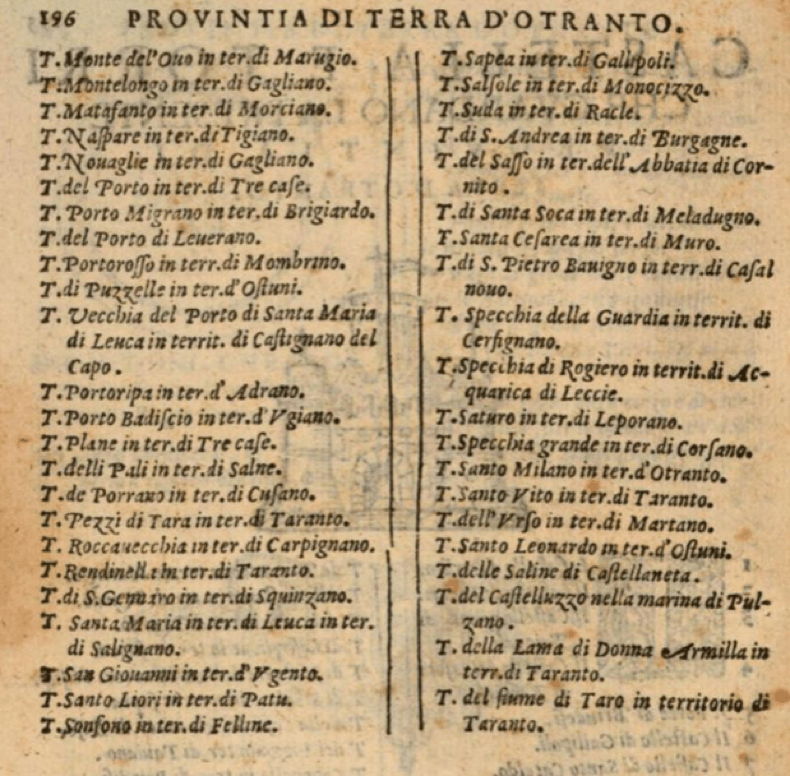 196 PROVINTIA DI TERRA D'OTRANTO.
T. Monte del'Ouo in ter. di Marugio.
T. Montelongo in ter. di Gagliano.
T. Matafanto in ter. di Morciano.
T. Naſpare in ter. di Tigiano.
T. Nouaglie in ter. di Gagliano.
T. del Porto in ter. di Tre caſe.
T. Porto Migrano in ter. di Brigiardo.
T. del Porto di Leuerano.
T. Portoroſſo in terr. di Mombrino.
T. di Puzzelle in ter. d'Oſtuni.
T. Vecchia del Porto di Santa Maria
di Leuca in territ. di Caſtignano del
Capo.
T. Portoripa in ter. d'Adrano.
T. Porto Badiſcio in ter. d'Vgiano.
T. Plane in ter. di Tre caſe.
T. delli Pali in ter. di Salne.
T. de Porrano in ter. di Cuſano.
T. Pezzi di Tara in ter. di Taranto.
T. Roccauecchia in ter. di Carpignano.
T. Rendinella in ter. di Taranto.
T. di S. Gennaro in ter. di Squinzano.
T. Santa Maria in ter. di Leuca in ter.
di Salignano.
T. San Giouanni in ter. d'Vgento.
T. Santo Liori in ter. di Patu.
T. Sonfono in ter. di Felline.
T. Sapea in ter. di Gallipoli.
T. Salſole in ter. di Monocizzo.
T. Suda in ter. di Racle.
T. di S. Andrea in ter. di Burgagne.
T. del Saſſo in ter. dell'Abbatia di Cor-
nito.
T. di Santa Soca in ter. di Meladugno.
T. Santa Ceſarea in ter. di Muro.
T. di S. Pietro Bauigno in terr. di Caſal
nouo.
T. Specchia della Guardia in territ. di
Cerfignano.
T. Specchia di Rogiero in territ. di Ac-
quarica di Leccie.
T. Saturo in ter. di Leporano.
T. Specchia grande in ter. di Corſano.
T. Santo Milano in ter. d'Otranto.
T. Santo Vito in ter. di Taranto.
T. dell'Vrſo in ter. di Martano.
T. Santo Leonardo in ter. d'Oſtuni.
T. delle Saline di Caſtellaneta.
T. del Caſtelluzzo nella marina di Pul-
zano.
T. della Lama di Donna Armilla in
terr. di Taranto.
T. del fiume di Taro in territorio di
Taranto.